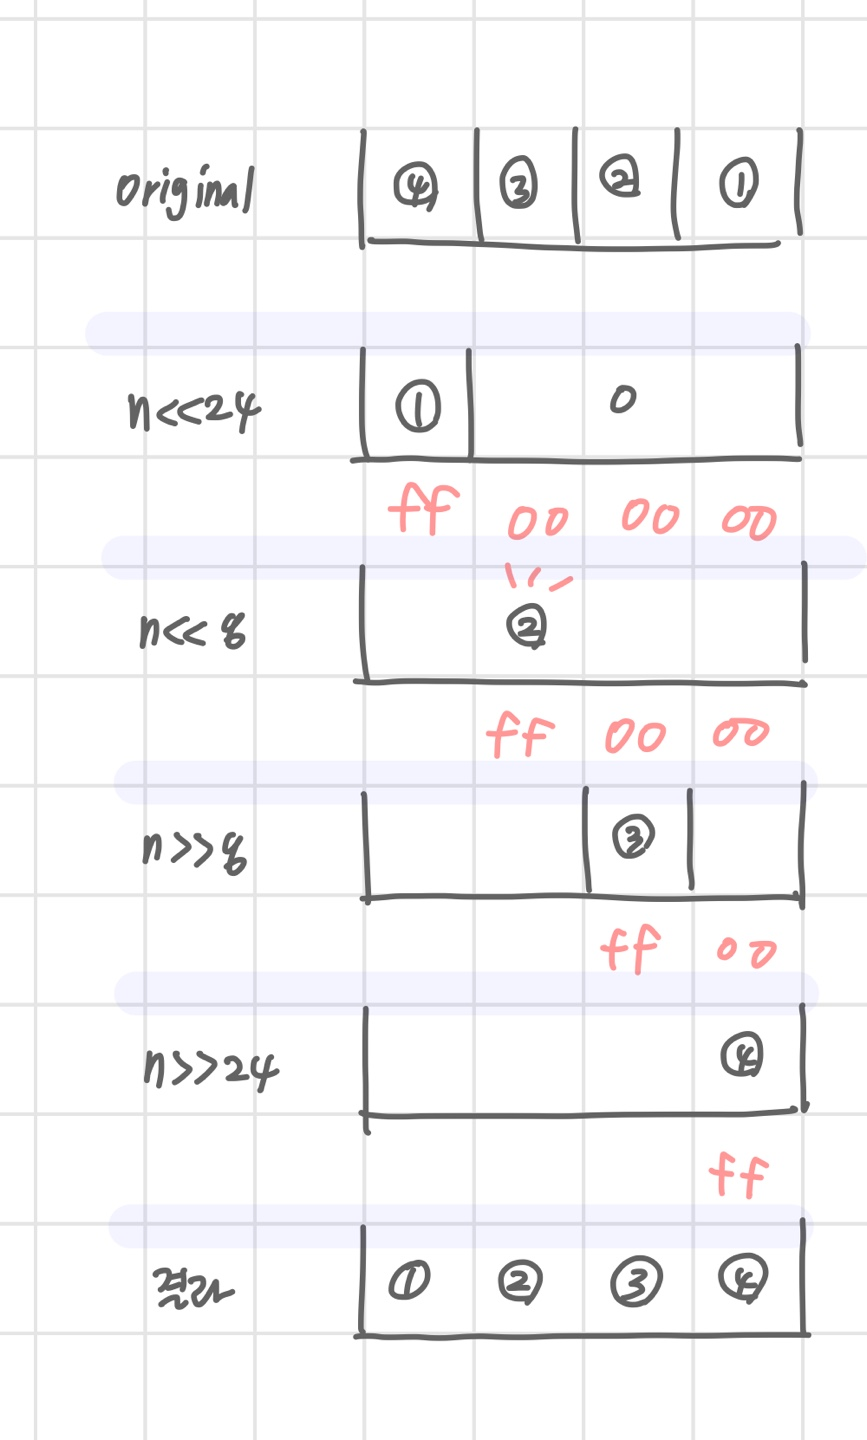 original ④ ③ ② ①
n<<24 ① 0
ff 00 00 00
n<<8 ②
ff 00 00
n>>8 ③
ff 00
n>>24 ④
ff
결과 ① ② ③ ④